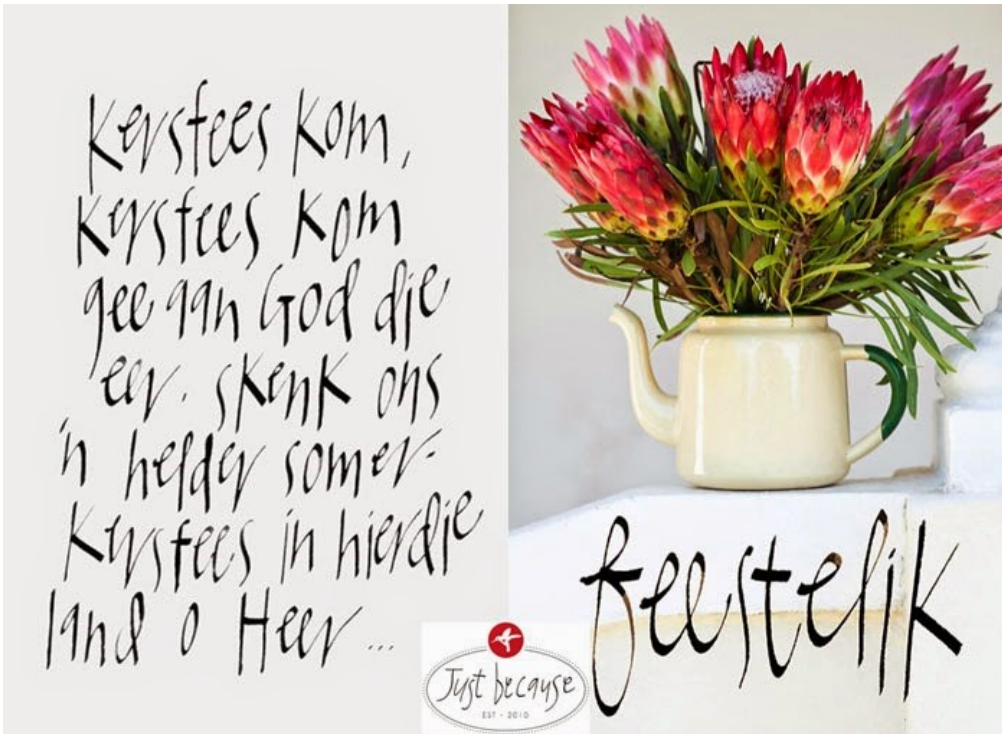 Kersfees kom,
Kersfees kom
gee aan God die
eer. skenk ons
'n helder somer-
Kersfees in hierdie
land o Heer...
feestelik
Just because
EST - 2010